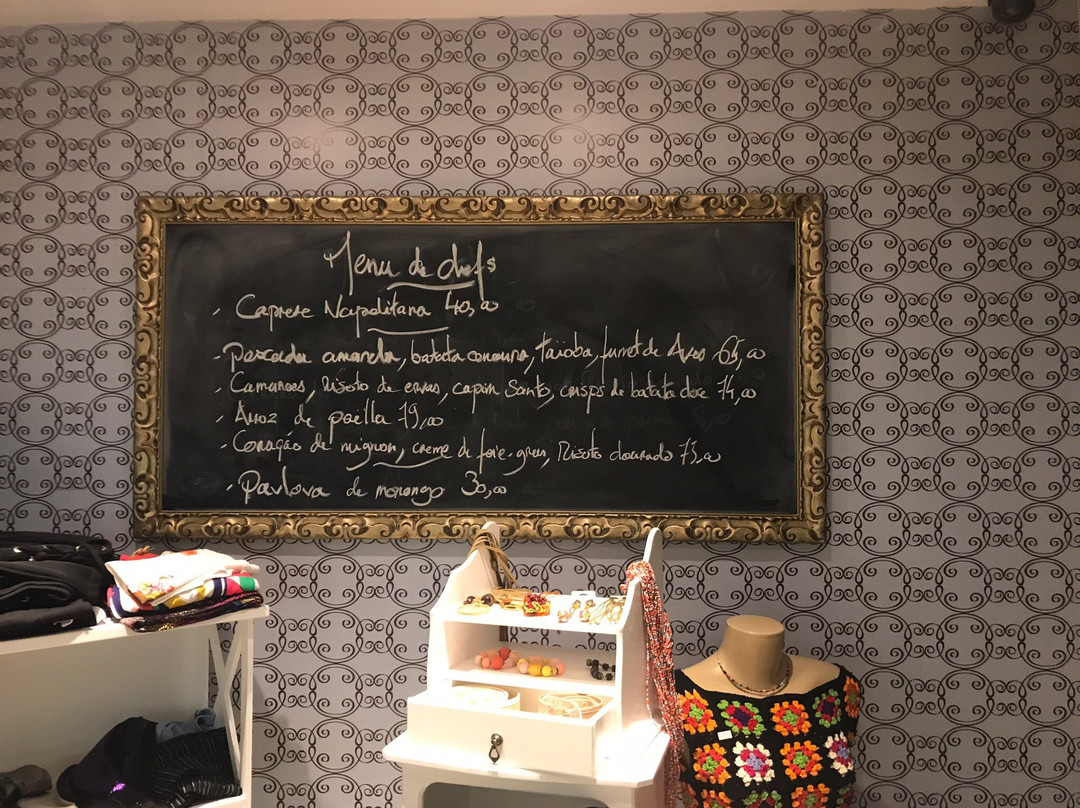 Menu de chefs
Caprese Napolitana 40,00
Pescada amarela, batata cenoura, taioba, fumet de Aves 65,00
Camarões, Risoto de ervas, capim Santo, crisps de batata doce 74,00
Arroz de paella 79,00
Coração de mignon, creme de foie-gras, Risoto dourado 73,00
Pavlova de morango 30,00